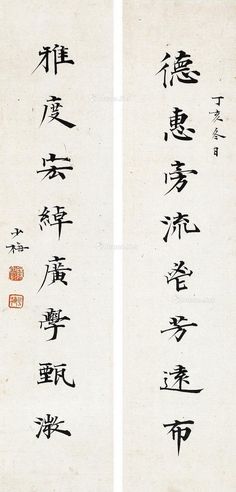 丁亥冬日
德惠旁流鬯芳遠布
雅度宏綽廣學甄微
少梅